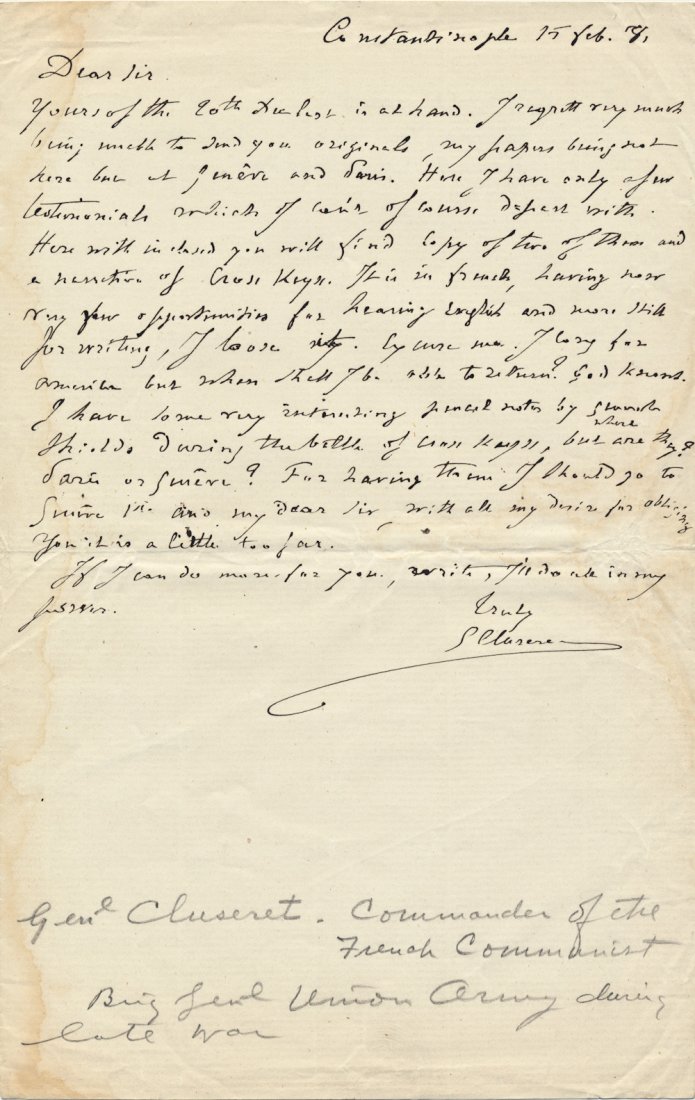 Constantinople 15 feb. 81
Dear Sir
Yours of the 20th Dec last is at hand. I regrett very much
being unable to send you originals, my papers being not
here but at Genêve and Paris. Here I have only a few
testimonials which I can't of course depart with.
Here with inclosed you will find copy of two of them and
a narrative of Cross Keys. It is in french, having now
very few opportunities for hearing English and more still
for writing, I loose it. Excuse me. I long for
America but when shall I be able to return? God knows.
I have some very interesting pencil notes by
Shields during the battle of cross keys, but where are they?
Paris or Genêve? For having them I should go to
Genêve and my dear Sir, with all my desire for obliging
you it is a little too far.
If I can do more for you, write, I'll do all in my
power.
Truly
G Cluseret
Genl Cluseret. Commander of the
French Communist
Brig Genl Union Army during
late war